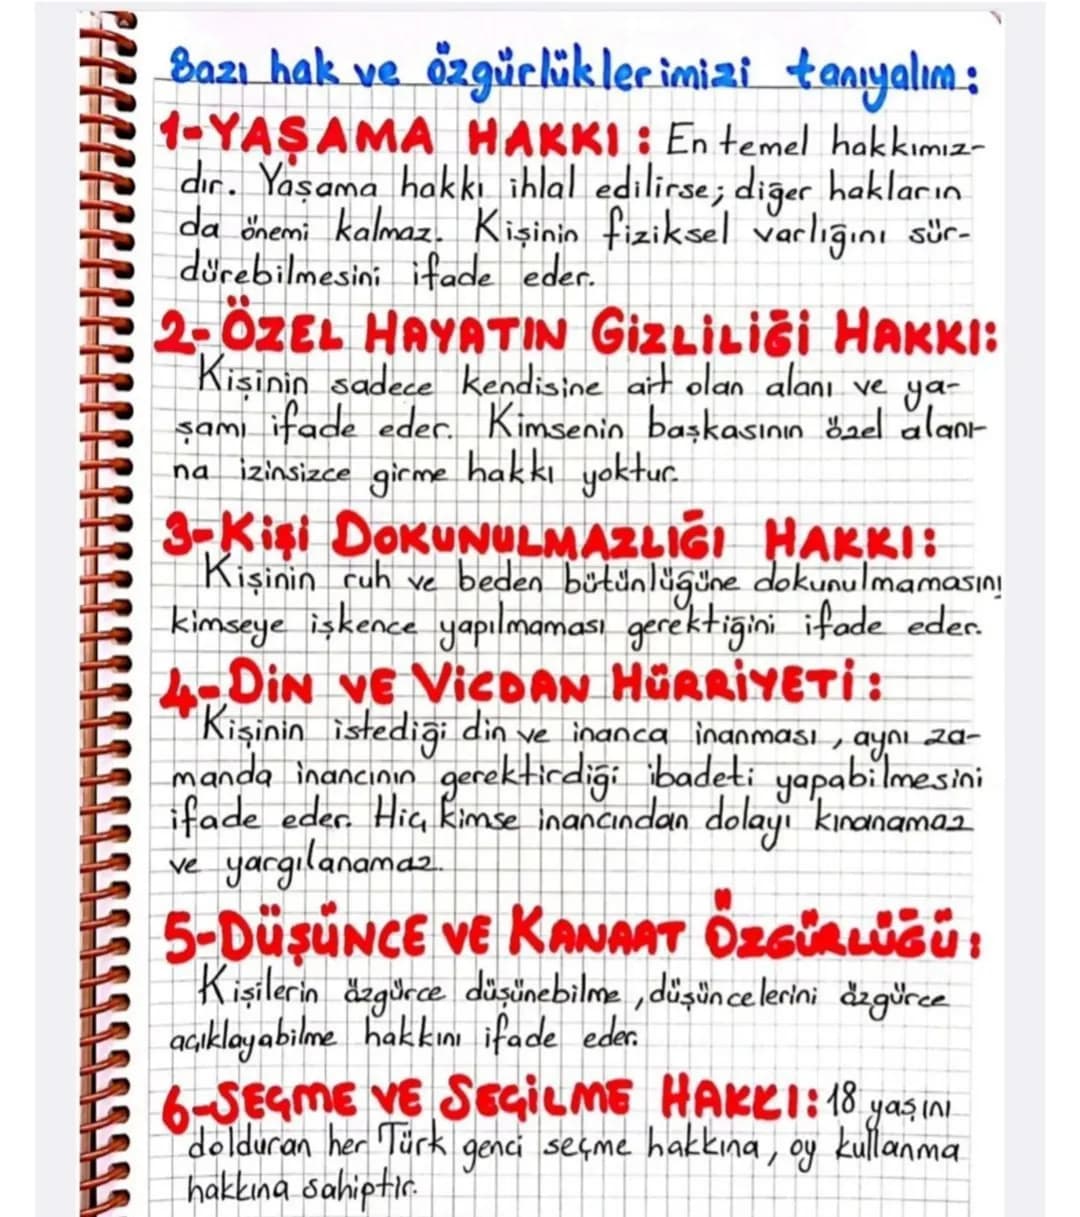 Bazı hak ve özgürlüklerimizi tanıyalım:
1-YAŞAMA HAKKI: En temel hakkımız-
dır. Yaşama hakkı ihlal edilirse; diğer hakların
da önemi kalmaz. Kişinin fiziksel varlığını sür-
dürebilmesini ifade eder.
2-ÖZEL HAYATIN GİZLİLİĞİ HAKKI:
Kişinin sadece kendisine ait olan alanı ve ya-
şamı ifade eder. Kimsenin başkasının özel alanı-
na izinsizce girme hakkı yoktur.
3-KİŞİ DOKUNULMAZLIĞI HAKKI:
Kişinin ruh ve beden bütünlüğüne dokunulmamasını
kimseye işkence yapılmaması gerektiğini ifade eder.
4-DİN VE VİCDAN HÜRRİYETİ:
Kişinin istediği din ve inanca inanması, aynı za-
manda inancının gerektirdiği ibadeti yapabilmesini
ifade eder. Hiç kimse inancından dolayı kınanamaz
ve yargılanamaz.
5-DÜŞÜNCE VE KANAAT ÖZGÜRLÜĞÜ:
Kişilerin özgürce düşünebilme, düşüncelerini özgürce
açıklayabilme hakkını ifade eder.
6-SEÇME VE SEÇİLME HAKKI: 18 yaşını
dolduran her Türk genci seçme hakkına, oy kullanma
hakkına sahiptir.